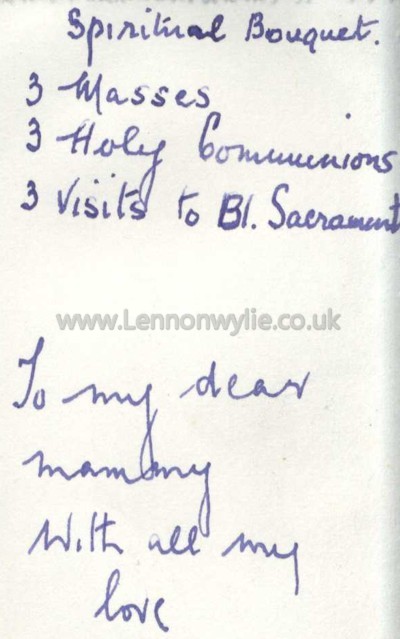 Spiritual Bouquet.
3 Masses
3 Holy Communions
3 Visits to Bl. Sacrament
www.Lennonwylie.co.uk
To my dear
mammy
With all my
love